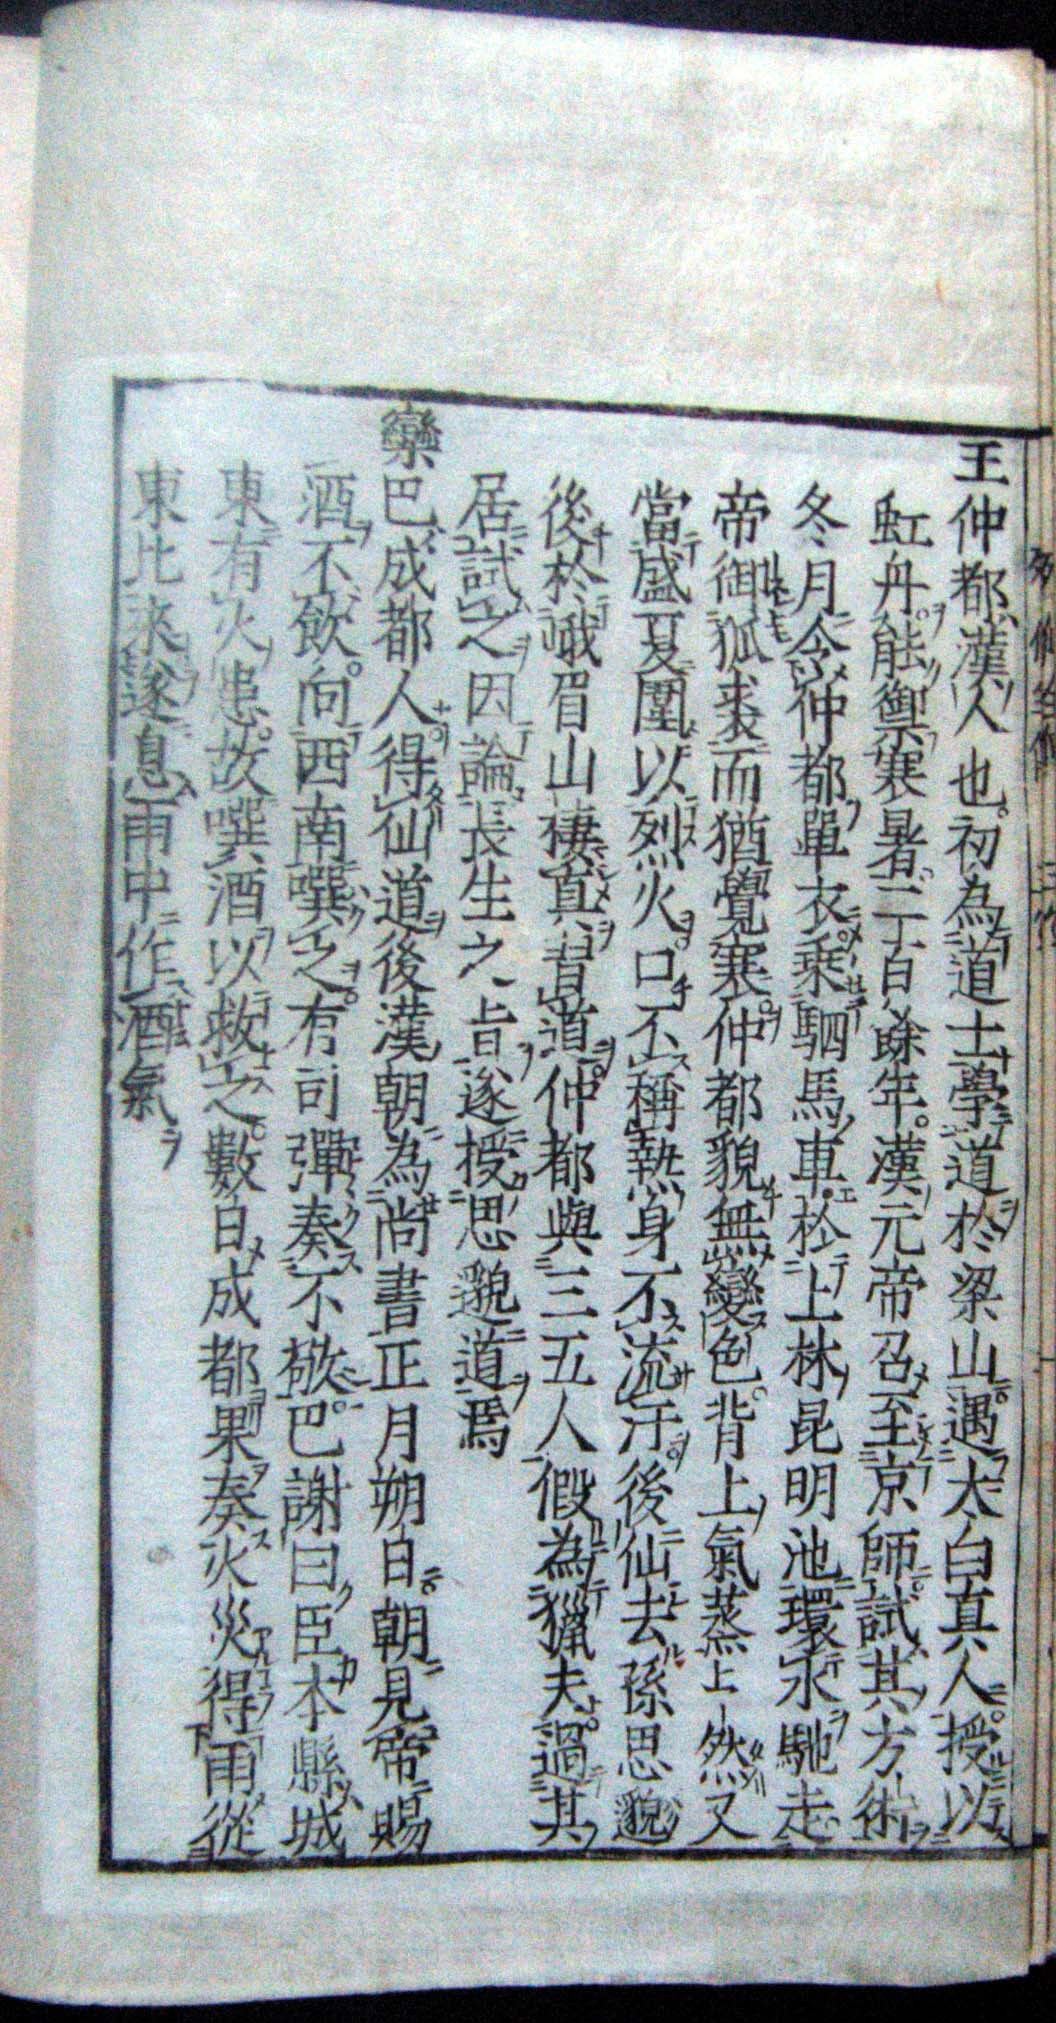 王仲都漢人也初為道士學道於梁山遇太白真人授以
虹丹能禦寒暑二百餘年漢元帝召至京師試其方術
冬月令仲都單衣乗駟馬車於上林昆明池環氷馳走
帝御狐裘而猶覺寒仲都貌無變色背上氣蒸上然又
當盛夏圍以烈火口不稱熱身不流汗後仙去孫思邈
後於峨眉山棲真習道仲都與三五人假為獵夫過其
居試之因論長生之旨遂授思邈道焉
欒巴成都人得仙道後漢朝為尚書正月朔日朝見帝賜
酒不飲向西南噀之有司彈奏不敬巴謝曰臣本縣城
東有火患故噀酒以救之數日成都果奏火災得雨從
東比來遂息雨中作酒氣